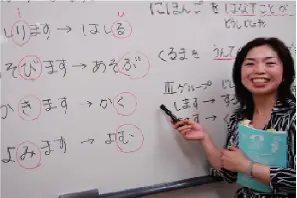 しります → はしる
そびます → あそぶ
かきます → かく
よみます → よむ
にほんごを はなすことが
くるまを うんて
Ⅲグループ
します → す